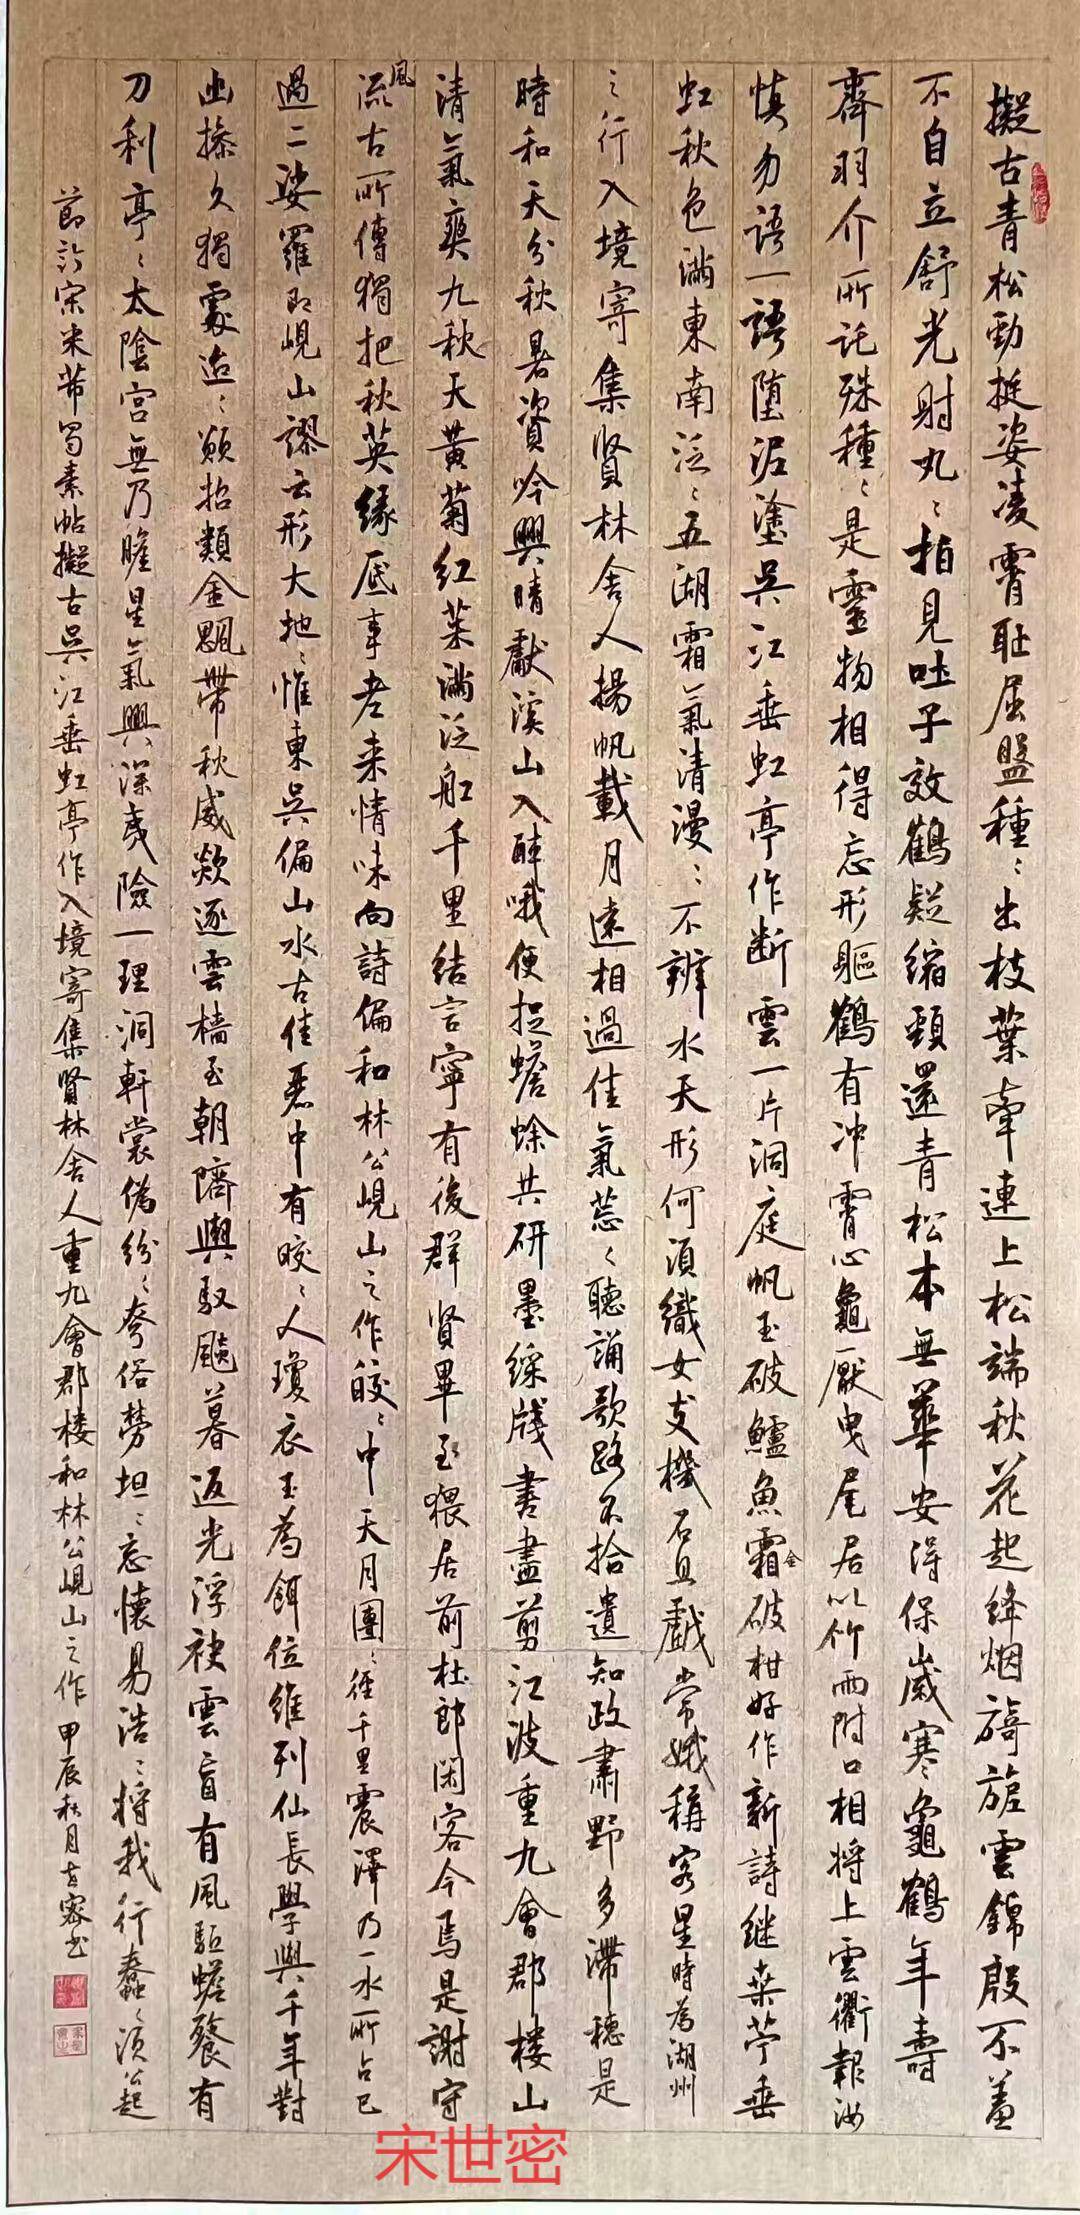 擬古青松勁挺姿凌霄恥屈盤種〻出枝葉牽連上松端秋花起絳烟旖旎雲錦殷不羞
不自立舒光射丸〻柏見吐子效鶴疑縮頸還青松本無華安得保歲寒龜鶴年壽
齊羽介所託殊種〻是靈物相得忘形軀鶴有冲霄心龜厭曳尾居以竹兩附口相將上雲衢報汝
慎勿語一語墮泥塗吳江垂虹亭作斷雲一片洞庭帆玉破鱸魚霜破柑好作新詩繼桑苧垂
金
虹秋色滿東南泛〻五湖霜氣清漫〻不辨水天形何須織女支機石且戲常娥稱客星時為湖州
之行入境寄集賢林舍人揚帆載月遠相過佳氣葱〻聽誦歌路不拾遺知政肅野多滯穗是
時和天分秋暑資吟興晴獻溪山入醉哦便捉蟾蜍共研墨綵牋書盡剪江波重九會郡樓山
清氣爽九秋天黃菊紅茱滿泛船千里結言寧有後群賢畢至猥居前杜郎閑客今焉是謝守
風
流古所傳獨把秋英緣底事老來情味向詩偏和林公峴山之作皎〻中天月團〻徑千里震澤乃一水所占已
過二娑羅即峴山謬云形大地〻惟東吳偏山水古佳麗中有皎〻人瓊衣玉為餌位維列仙長學與千年對
幽操久獨處迢〻願招類金颸帶秋威欻逐雲檣至朝隮輿馭飈暮返光浮袂雲盲有風驅蟾餮有
刀利亭〻太陰宮無乃瞻星氣興深夷險一理洞軒裳偽紛〻夸俗勞坦〻忘懷易浩〻將我行蠢〻須公起
節許宋米芾蜀素帖擬古吳江垂虹亭作入境寄集賢林舍人重九會郡樓和林公峴山之作 甲辰秋月 書
宋世密